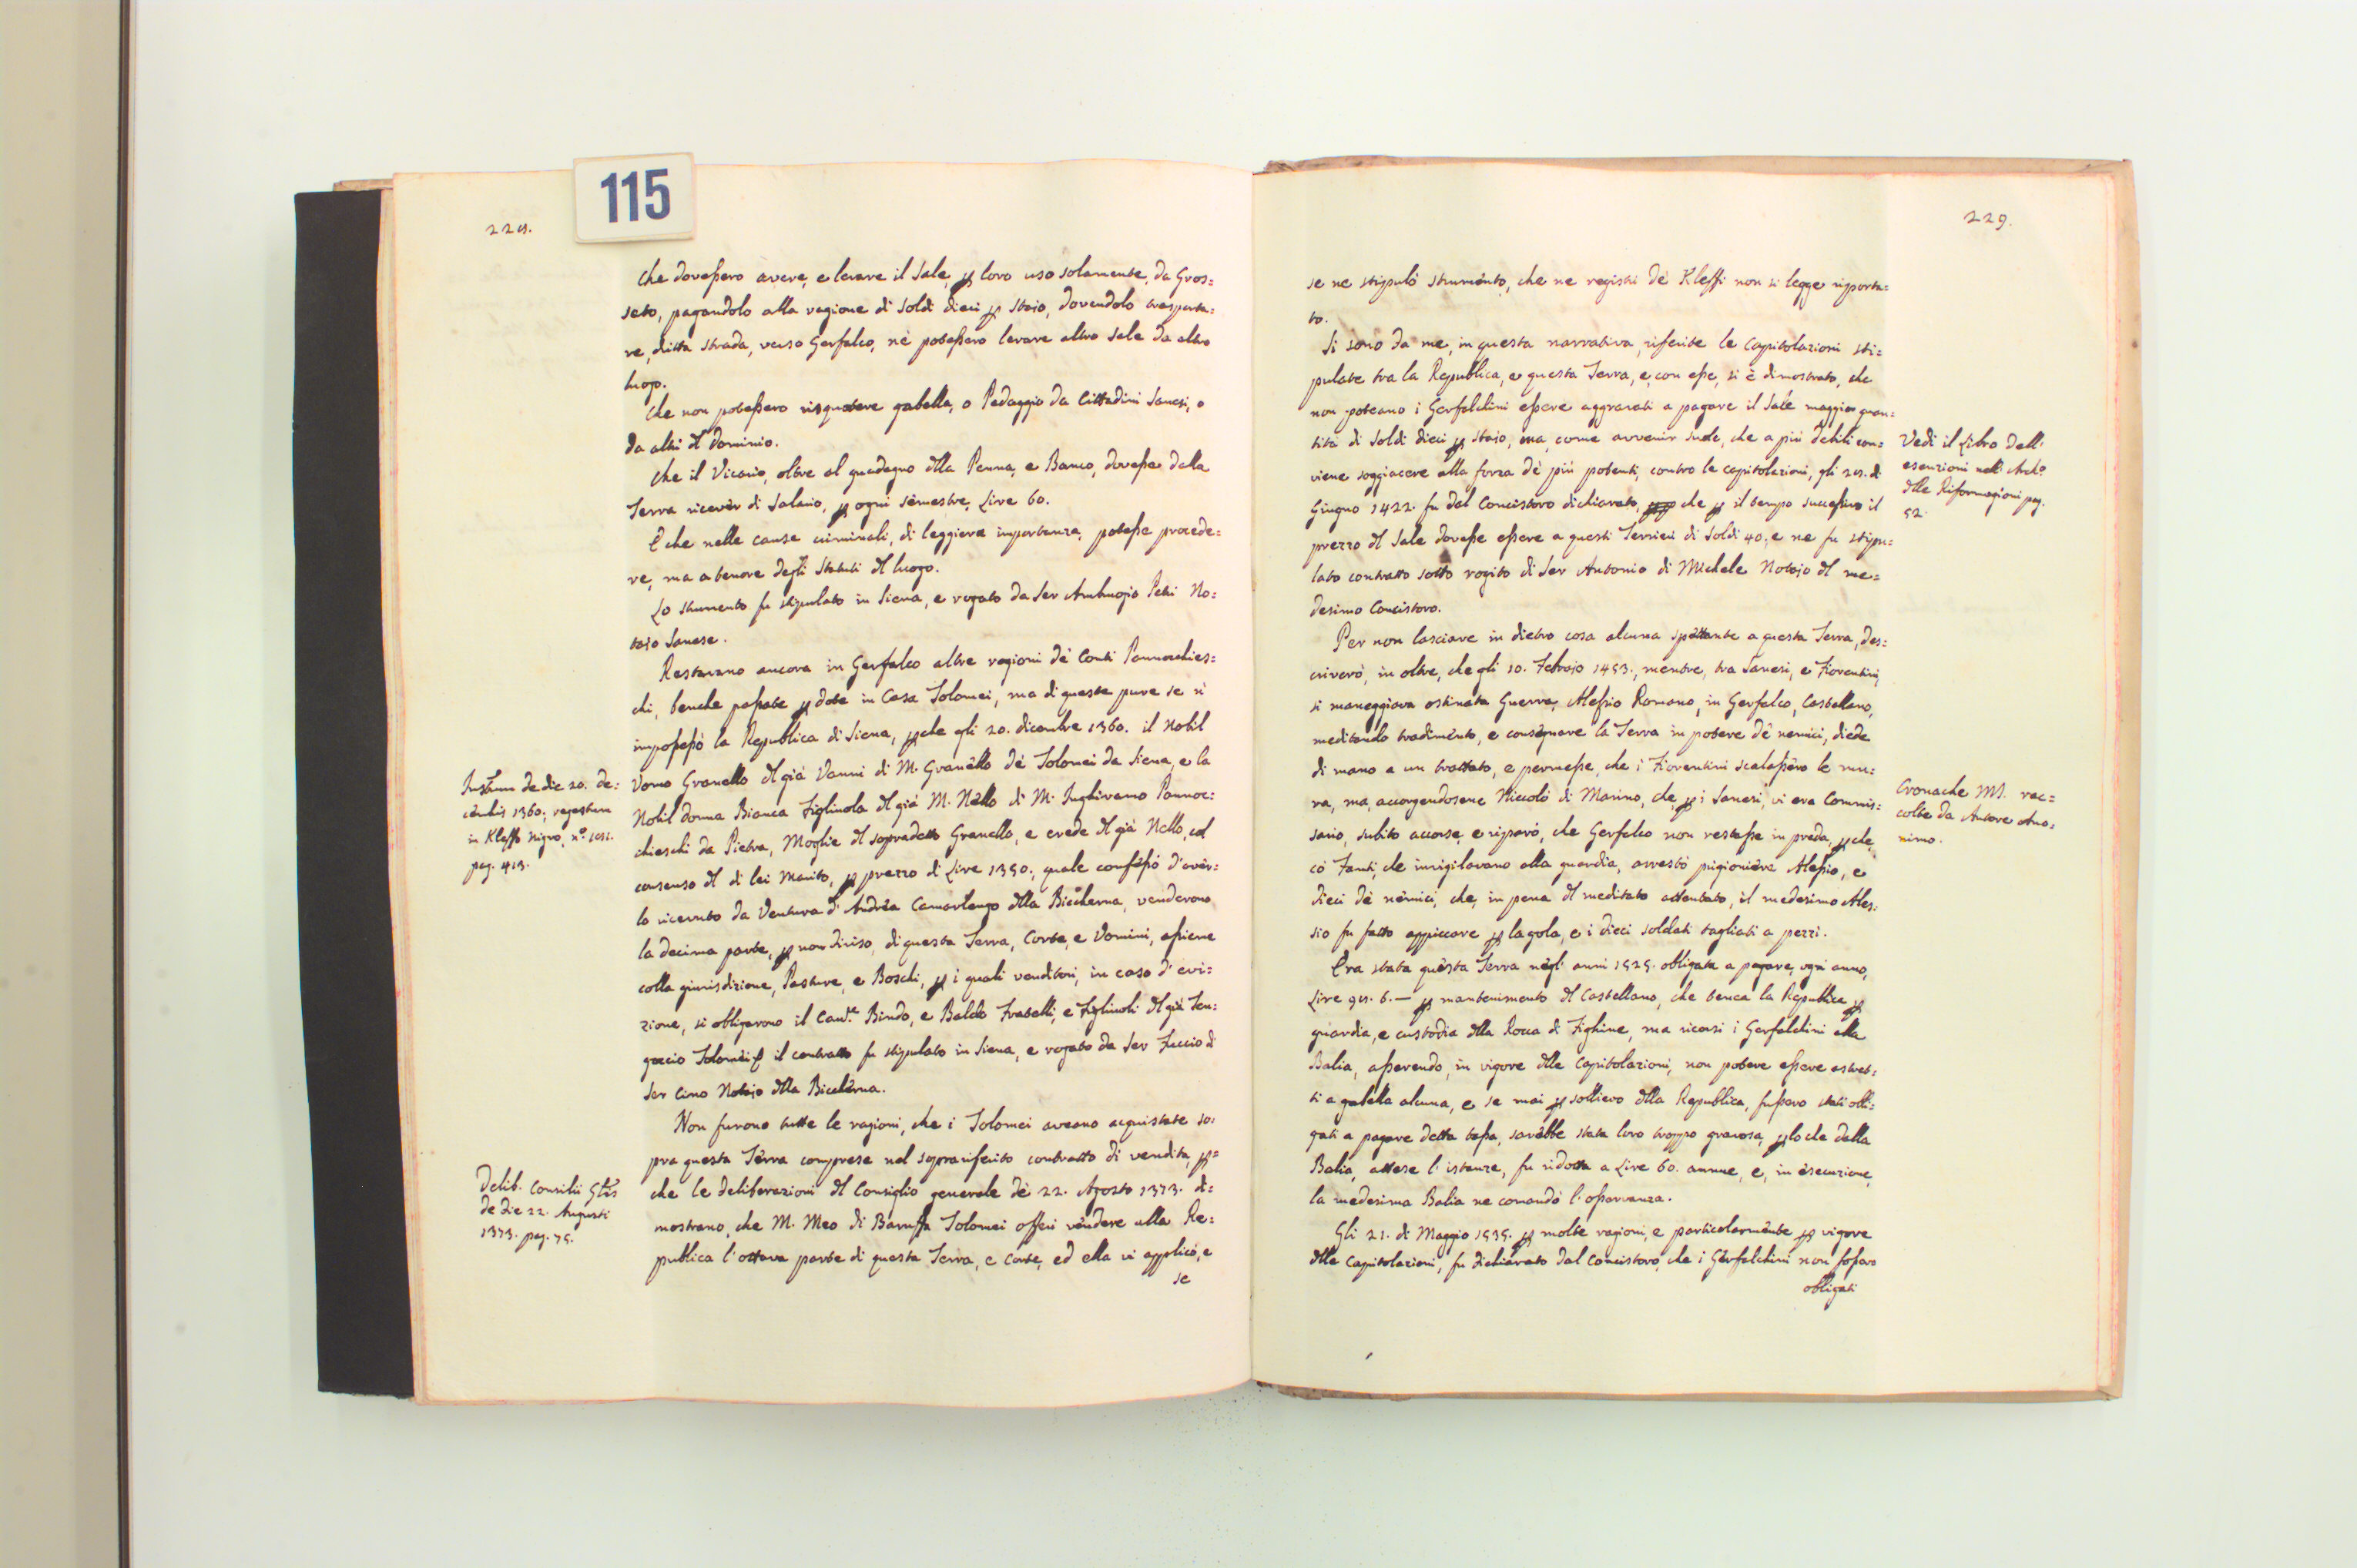 115
228.
che dovessero avere, e levare il Sale, p loro uso solamente, da Gros=
seto, pagandolo alla ragione di Soldi dieci p staio, dovendolo trasporta=
re, ditta strada, verso Gerfalco, nè potessero levare altro Sale da altro
luogo.
Che non potessero risquotere gabella, o Pedaggio da Cittadini Sanesi, o
da altri dl Dominio.
Che il Vicario, oltre al guadagno dlla Penna, e Banco, dovesse dalla
Terra ricever di Salario, p ogni semestre, Lire 60.
E che nelle cause criminali, di leggiera importanza, potesse procede=
re, ma a tenore degli Statuti dl luogo.
Lo strumento fu stipulato in Siena, e rogato da Ser Ambrogio Petri No=
taio Sanese.
Restavano ancora in Gerfalco altre ragioni dè Conti Pannocchies=
chi, benche passate p dote in Casa Tolomei, ma di queste pure se ne
impossessò la Republica di Siena, pche gli 20. dicembre 1360. il Nobil
Uomo Granello dl già Vanni di M. Granello dè Tolomei da Siena, e la
Nobil donna Bianca Figliuola dl già M. Nello di M. Inghiramo Pannoc=
chieschi da Pietra, Moglie dl sopradetto Granello, e erede dl già Nello, col
consenso dl di lei Marito, p prezzo di Lire 1350., quale confessò d'aver=
lo ricevuto da Ventura d'Andrea Camarlengo dlla Biccherna, venderono
la decima parte, p non diviso, di questa Terra, Corte, e Uomini, assieme
colla giurisdizione, Pasture, e Boschi, p i quali venditori, in caso d'evi=
zione, si obligarono il Cav.re Bindo, e Baldo Fratelli, e Figliuoli dl già Ten=
goccio Tolomei, e il contratto fu stipulato in Siena, e rogato da Ser Feccio di
Ser Cino Notaio dlla Biccherna.
Non furono tutte le ragioni, che i Tolomei aveano acquistate so=
pra questa Terra comprese nel soprariferito contratto di vendita, p=
che le deliberazioni dl Consiglio generale dè 22. Agosto 1373. di=
mostrano, che M. Meo di Baruffa Tolomei offerì vendere alla Re=
publica l'ottava parte di questa Terra, e Corte, ed ella vi applicò, e
se
Instrum de die 20. de=
cembris 1360., registrum
in Kleffo Nigro, nº 151.
pag. 413.
Delib. Consilii Glis
de die 22. Augusti
1373. pag. 75.
229.
se ne stipulò strumento, che ne registri dè Kleffi non si legge riporta=
to.
Si sono da me, in questa narrativa, riferite le Capitolazioni sti=
pulate tra la Republica, e questa Terra, e, con esse, si è dimostrato, che
non poteano i Gerfalchini essere aggravati a pagare il Sale maggior quan=
tità di Soldi dieci p staio, ma, come avvenir suole, che a più debili con=
viene soggiacere alla forza dè più potenti, contro le capitolazioni, gli 28. di
Giugno 1422. fu dal Concistoro dichiarato, che p il tempo successivo il
prezzo dl Sale dovesse essere a questi Terrieri di Soldi 40., e ne fu stipu=
lato contratto sotto rogito di Ser Antonio di Michele Notaio dl me=
desimo Concistoro.
Per non lasciare in dietro cosa alcuna spettante a questa Terra, des=
criverò, in oltre, che gli 10. Febraio 1453., mentre, tra Sanesi, e Fiorentini,
si maneggiava ostinata Guerra, Alessio Romano, in Gerfalco, Castellano,
meditando tradimento, e consegnare la Terra in potere dè nemici, diede
di mano a un trattato, e permesse, che i Fiorentini scalassero le mu=
ra, ma, accorgendosene Niccolò di Marino, che, p i Sanesi, vi era Commis=
sario, subito accorse, e riparò, che Gerfalco non restasse in preda, pche,
cò Fanti, che invigilavano alla guardia, arrestò prigioniere Alessio, e
dieci dè nemici, che, in pena dl meditato attentato, il medesimo Ales=
sio fu fatto appiccare p la gola, e i dieci soldati tagliati a pezzi.
Era stata questa Terra negl'anni 1525. obligata a pagare, ogni anno,
Lire 98. 6. — p mantenimento dl Castellano, che tenea la Republica p
guardia, e custodia dlla Rocca di Fighine, ma ricorsi i Gerfalchini alla
Balia, asserendo, in vigore dlle Capitolazioni, non potere essere astret=
ti a gabella alcuna, e se mai p sollievo dlla Republica, fussero stati obli=
gati a pagare detta tassa, sarebbe stata loro troppo gravosa, p lo che dalla
Balia, attese l'istanze, fu ridotta a Lire 60. annue, e, in esecuzione,
la medesima Balia ne comandò l'osservanza.
Gli 21. di Maggio 1535. p molte ragioni, e particolarmente p vigore
dlle Capitolazioni, fu dichiarato dal Concistoro, che i Gerfalchini non fossero
obligati
Vedi il Libro dell'
esenzioni nell'Archº
dlle Riformagioni pag.
52.
Cronache MS. rac=
colte da Autore Ano=
nimo.